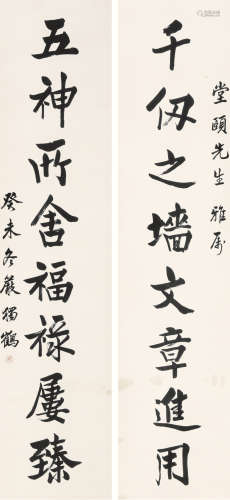 堂頤先生雅屬
千仞之墙文章進用
五神所舍福祿屢臻
癸未冬嚴獨鶴